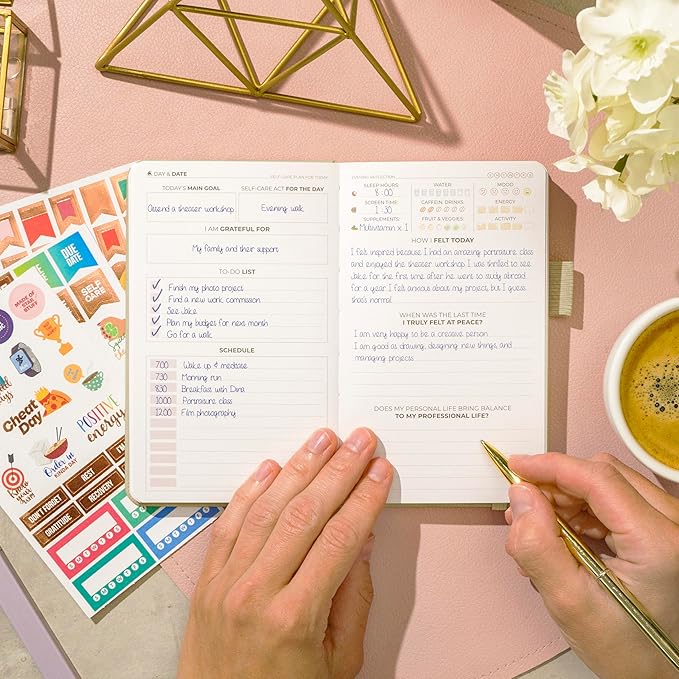 DAY & DATE
SELF-CARE PLAN FOR TODAY
TODAY'S MAIN GOAL
SELF-CARE ACT FOR THE DAY
Attend a theater workshop
Evening walk
I AM GRATEFUL FOR
My family and their support
TO-DO LIST
Finish my photo project
Find a new work commission
See Jake
Plan my budges for next month
Go for a walk
SCHEDULE
7:00 Wake up & meditate
7:30 Morning run
8:30 Breakfast with Dina
10:00 Portraiture class
12:00 Film photography
EVENING REFLECTION
SLEEP HOURS
8:00
SCREEN TIME
1:30
SUPPLEMENTS
Multivitamin x 1
WATER
CAFFEIN. DRINKS
FRUIT & VEGGIES
MOOD
ENERGY
ACTIVITY
HOW I FELT TODAY
I felt inspired because I had an amazing portraiture class
and enjoyed the theater workshop. I was thrilled to see
Jake for the first time after he went to study abroad
for a year. I felt anxious about my project, but I guess
that's normal.
WHEN WAS THE LAST TIME
I TRULY FELT AT PEACE?
I am very happy to be a creative person.
I am good as drawing, designing new things, and
managing projects
DOES MY PERSONAL LIFE BRING BALANCE
TO MY PROFESSIONAL LIFE?
DUE
DATE
MADE OF
STAR
STUFF
SELF
CARE
Cheat
Day
POSITIVE
energy
Order in
KINDA DAY
DON'T FORGET
REST
RECOVERY
GRATITUDE
S M T W T F S
S M T W T F S
S M T W T F S